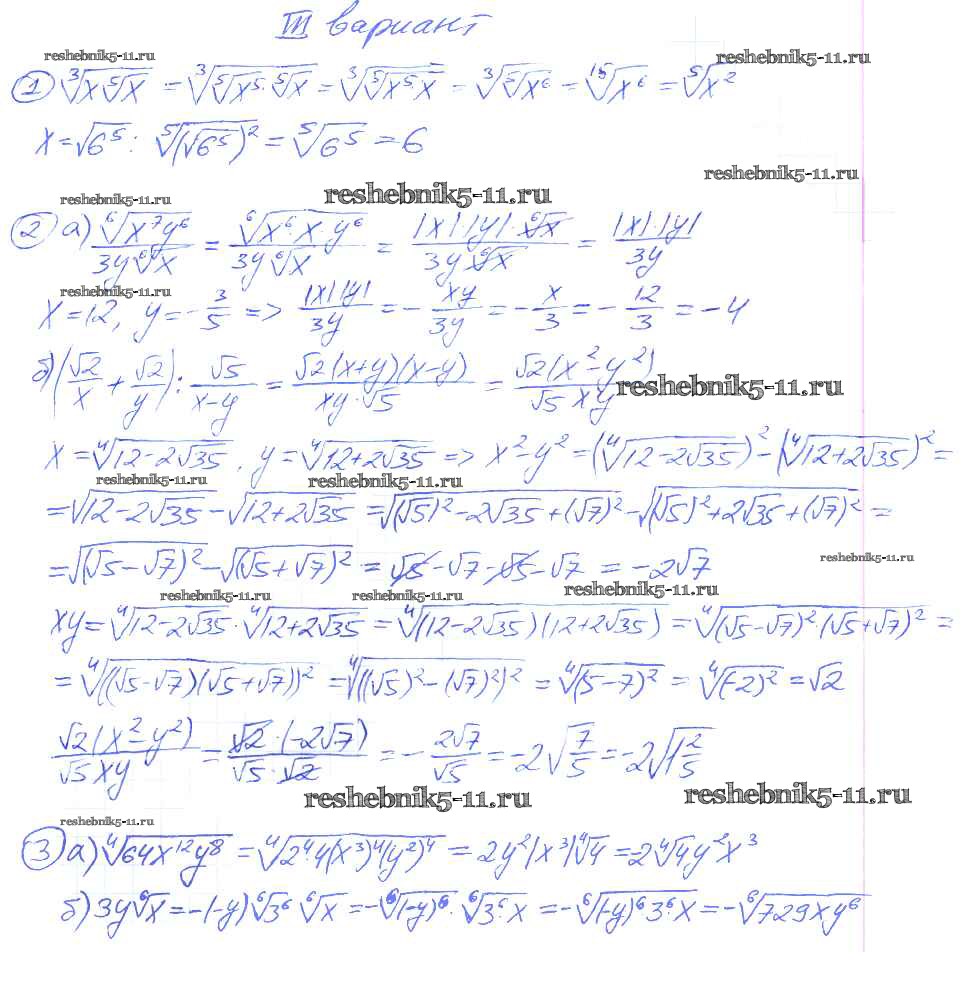 III вариант
reshebnik5-11.ru reshebnik5-11.ru
① ∛(x⁵√x) = ∛(⁵√x⁵ · ⁵√x) = ∛(⁵√(x⁵·x)) = ∛(⁵√x⁶) = ¹⁵√x⁶ = ⁵√x²
x = √6⁵ : ⁵√((√6⁵)²) = ⁵√6⁵ = 6
reshebnik5-11.ru
reshebnik5-11.ru reshebnik5-11.ru
② а) ⁶√(x⁷y⁶)/(3y ⁶√x) = ⁶√(x⁶·x·y⁶)/(3y ⁶√x) = |x|·|y|·⁶√x/(3y ⁶√x) = |x|·|y|/(3y)
reshebnik5-11.ru
x = 12, y = -3/5 => |x||y|/(3y) = - xy/(3y) = - x/3 = - 12/3 = -4
б) (√2/x + √2/y) : √5/(x-y) = √2(x+y)(x-y)/(xy·√5) = √2(x²-y²)/(√5 xy)
reshebnik5-11.ru
x = ⁴√(12-2√35), y = ⁴√(12+2√35) => x²-y² = (⁴√(12-2√35))² - (⁴√(12+2√35))² =
reshebnik5-11.ru reshebnik5-11.ru
= √(12-2√35) - √(12+2√35) = √((√5)²-2√35+(√7)²) - √((√5)²+2√35+(√7)²) =
= √((√5-√7)²) - √((√5+√7)²) = √5-√7-√5-√7 = -2√7
reshebnik5-11.ru
reshebnik5-11.ru reshebnik5-11.ru reshebnik5-11.ru
xy = ⁴√(12-2√35)·⁴√(12+2√35) = ⁴√((12-2√35)(12+2√35)) = ⁴√((√5-√7)²·(√5+√7)²) =
= ⁴√(((√5-√7)(√5+√7))²) = ⁴√(((√5)²-(√7)²)²) = ⁴√((5-7)²) = ⁴√((-2)²) = √2
√2(x²-y²)/(√5 xy) = √2·(-2√7)/(√5·√2) = - 2√7/√5 = -2√(7/5) = -2√(1 2/5)
reshebnik5-11.ru reshebnik5-11.ru
reshebnik5-11.ru
③ а) ⁴√(64x¹²y⁸) = ⁴√(2⁴·4(x³)⁴(y²)⁴) = 2y²|x³|⁴√4 = 2⁴√4 y²x³
б) 3y⁶√x = -(-y)⁶√3⁶ ⁶√x = -⁶√((-y)⁶)·⁶√(3⁶·x) = -⁶√((-y)⁶3⁶·x) = -⁶√(729xy⁶)